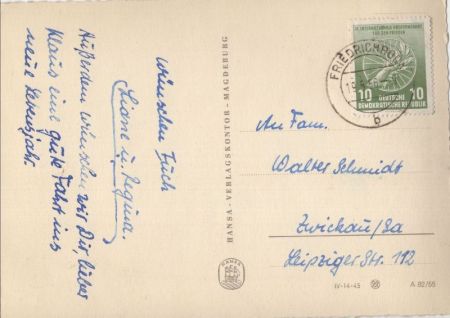 wünschen Euch
Liane u. Regina.
Außerdem wünschen wir Dir, lieber
Klaus eine gute Fahrt ins
neue Lebensjahr.
HANSA - VERLAGSKONTOR - MAGDEBURG
HANSA
FÜR DEN FRIEDEN
10 DEUTSCHE 10
DEMOKRATISCHE REPUBLIK
FRIEDRICHRODA
b
An Fam.
Walter Schmidt
Zwickau/Sa
Leipziger Str. 112
IV-14-45
A 82/55